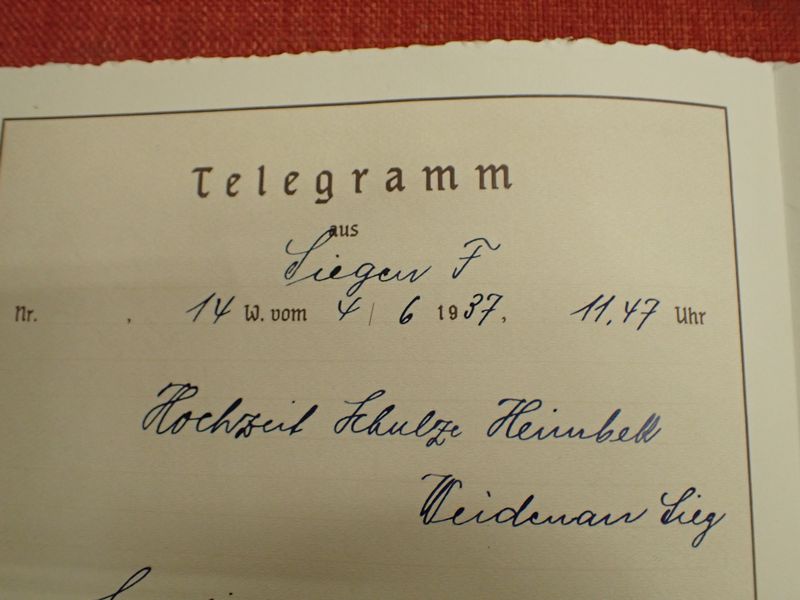 Telegramm
aus
Siegen F
Nr. , 14 W. vom 4 / 6 1937, 11,47 Uhr
Hochzeit Schulze Heimbell
Weidenau Sieg